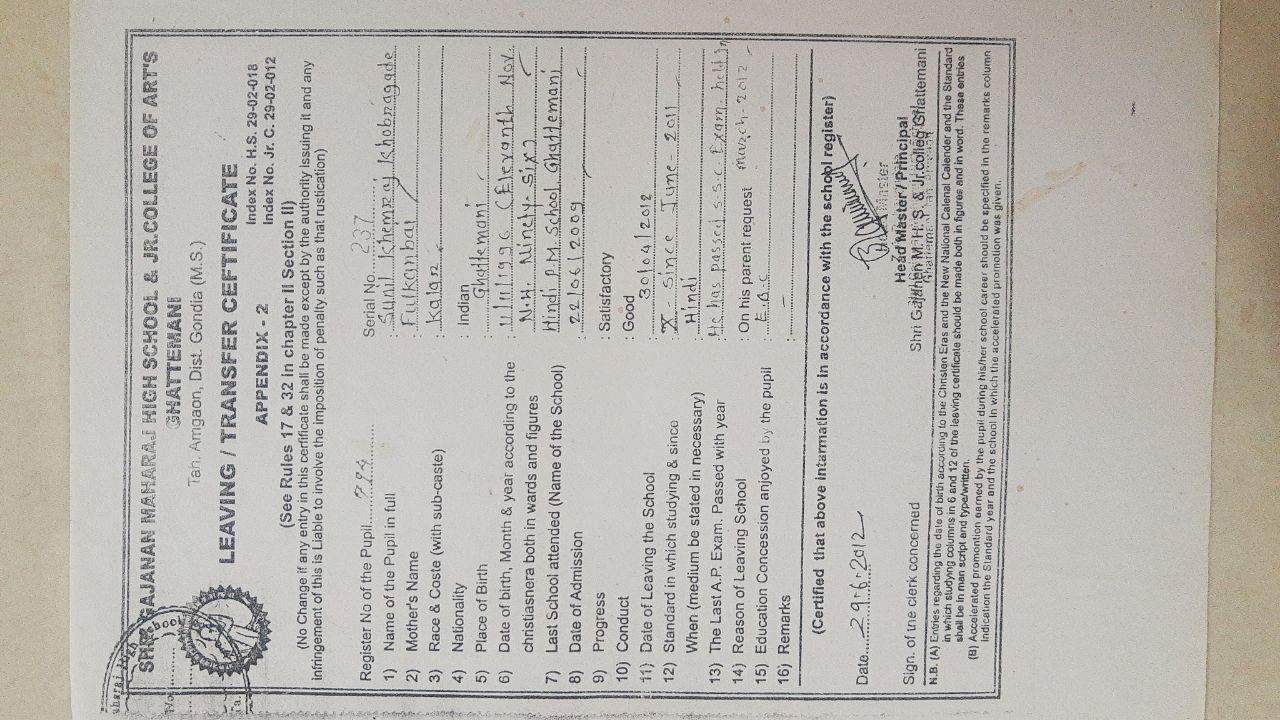 SHRI. GAJANAN MAHARAJ HIGH SCHOOL & JR.COLLEGE OF ART'S
GHATTEMANI
Tah. Amgaon, Dist. Gondia (M.S.)
LEAVING / TRANSFER CETIFICATE
Index No. H.S. 29-02-018
APPENDIX - 2
Index No. Jr. C. 29-02-012
(See Rules 17 & 32 in chapter II Section II)
(No Change if any entry in this cerfificate shall be made except by the authority issuing it and any
infringement of this is Liable to involve the imposition of penalty such as that rustication)
Register No of the Pupil Serial No. 237
1) Name of the Pupil in full : Sunil Khemraj Khobragade
2) Mother's Name : Fulkanbai
3) Race & Coste (with sub-caste) : Kalar
4) Nationality : Indian
5) Place of Birth : Ghattemani
6) Date of birth, Month & year according to the : 11/11/1996 (Elevanth Nov.
christiasnera both in wards and figures N.H. Ninety-Six)
7) Last School attended (Name of the School) Hindi P.M. School Ghattemani
8) Date of Admission : 22/06/2009
9) Progress : Satisfactory
10) Conduct : Good
11) Date of Leaving the School : 30/04/2012
12) Standard in which studying & since : X - Since June - 2011
When (medium be stated in necessary) Hindi
13) The Last A.P. Exam. Passed with year : He has passed s.s.c Exam. held in
14) Reason of Leaving School : On his parent request march-2012
15) Education Concession enjoyed by the pupil : E.B.C
16) Remarks : -
(Certified that above intarmation is in accordance with the school register)
Date 29.6.2012
Head Master / Principal
Sign. of the clerk concerned Shri Gajanan M. H. S. & Jr.colleg Ghattemani
N.B. (A) Entries regarding the date of birth according to the Christen Eras and the New National Calenal Calender and the Standard
in which studying columns in 6 and 12 of the leaving certificate should be made both in figures and in word. These entries
shall be in man script and type/written.
(B) Accelerated promontion earned by the pupil during his/her school career should be specified in the remarks column
indication the Standard year and the school in which the accelerated promotion was given.